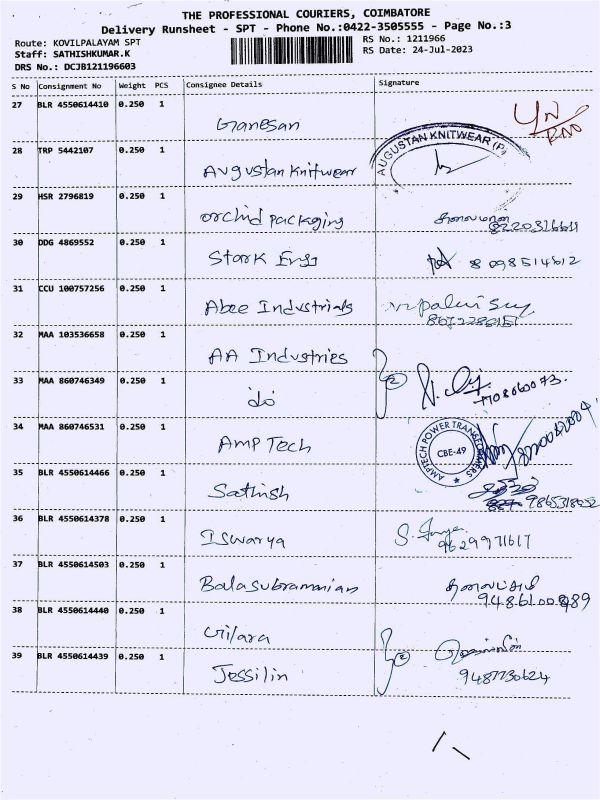 THE PROFESSIONAL COURIERS, COIMBATORE
Delivery Runsheet - SPT - Phone No.:0422-3505555 - Page No.:3
Route: KOVILPALAYAM SPT
RS No.: 1211966
Staff: SATHISHKUMAR.K
RS Date: 24-Jul-2023
DRS No.: DCJB121196603
S No Consignment No Weight PCS Consignee Details Signature
27 BLR 4550614410 0.250 1 Ganesan
28 TRP 5442107 0.250 1 Augustan Knitwear AUGUSTAN KNITWEAR (P)
29 HSR 2796819 0.250 1 orchid packaging
30 DDG 4869552 0.250 1 Stark Engg 8098514612
31 CCU 100757256 0.250 1 Abee Industrials
32 MAA 103536658 0.250 1 AA Industries
33 MAA 860746349 0.250 1 do 2
34 MAA 860746531 0.250 1 AMP Tech AMPTECH POWER TRANSFORMERS CBE-49
35 BLR 4550614466 0.250 1 Sathish
36 BLR 4550614378 0.250 1 Iswarya 9629971617
37 BLR 4550614503 0.250 1 Balasubramanian
38 BLR 4550614440 0.250 1
39 BLR 4550614439 0.250 1 Jessilin 2 9487730624